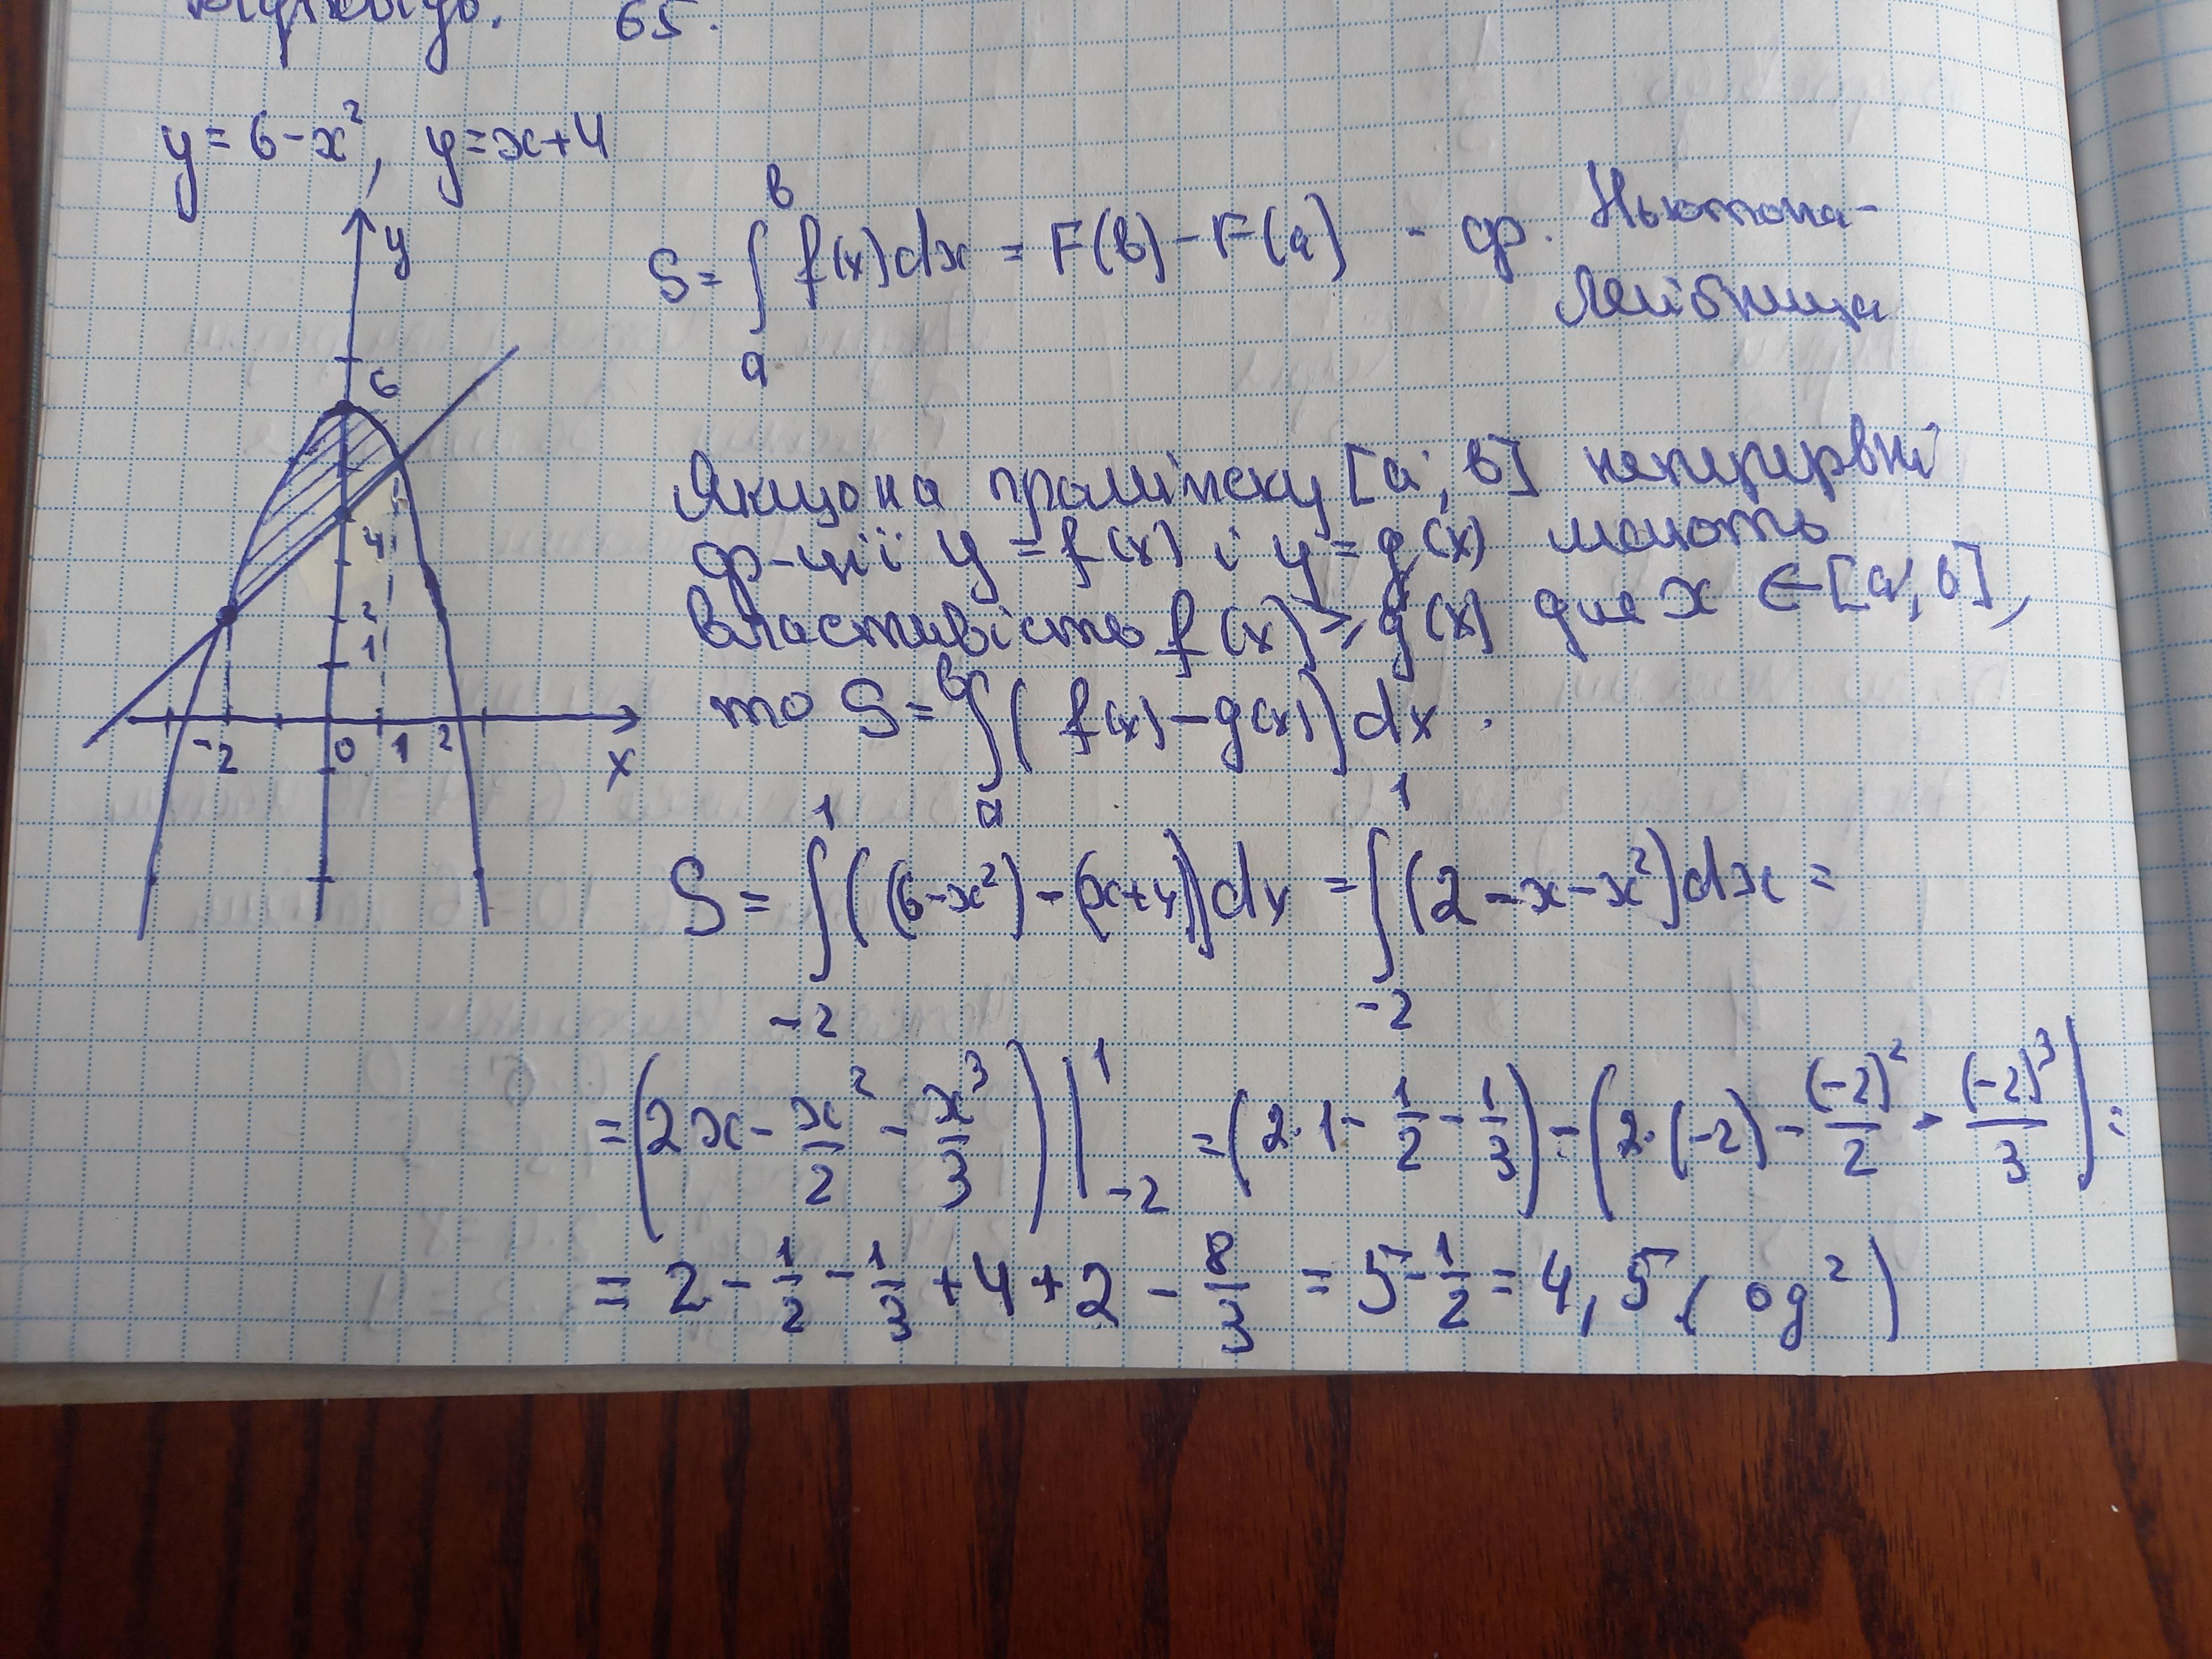 65.
y = 6 - x², y = x + 4
S = ∫ₐᵇ f(x) dx = F(b) - F(a) - ф. Ньютона-
Лейбница
y
6
4
2
1
-2 0 1 2
x
Якщо на проміжку [a; b] неперервні
ф-ції y = f(x) і y = g(x) мають
властивість f(x) ≥ g(x) для x ∈ [a; b],
то S = ∫ₐᵇ (f(x) - g(x)) dx.
S = ∫₋₂¹ ((6 - x²) - (x + 4)) dx = ∫₋₂¹ (2 - x - x²) dx =
= (2x - x²/2 - x³/3) |₋₂¹ = (2·1 - 1/2 - 1/3) - (2·(-2) - (-2)²/2 - (-2)³/3) =
= 2 - 1/2 - 1/3 + 4 + 2 - 8/3 = 5 - 1/2 = 4,5 (од²)